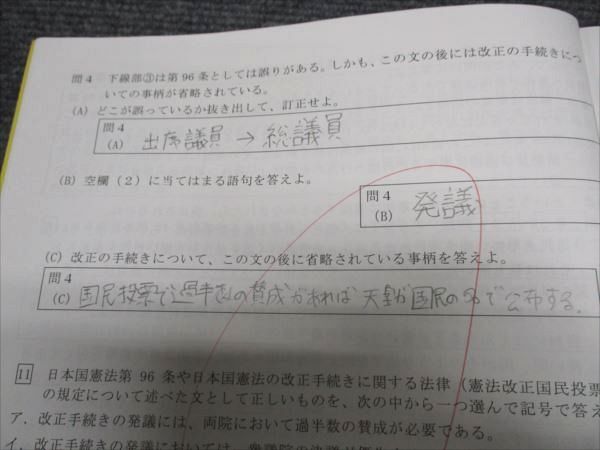 問4 下線部③は第96条としては誤りがある。しかも、この文の後には改正の手続きにつ
いての事柄が省略されている。
(A) どこが誤っているか抜き出して、訂正せよ。
問4
(A) 出席議員 → 総議員
(B) 空欄（2）に当てはまる語句を答えよ。
問4
(B) 発議
(C) 改正の手続きについて、この文の後に省略されている事柄を答えよ。
問4
(C) 国民投票で過半数の賛成があれば 天皇が国民の名で公布する.
11 日本国憲法第96条や日本国憲法の改正手続きに関する法律（憲法改正国民投票
の規定について述べた文として正しいものを、次の中から一つ選んで記号で答え
ア．改正手続きの発議には、両院において過半数の賛成が必要である。
イ．改正手続きの発議においては、衆議院の決議が優